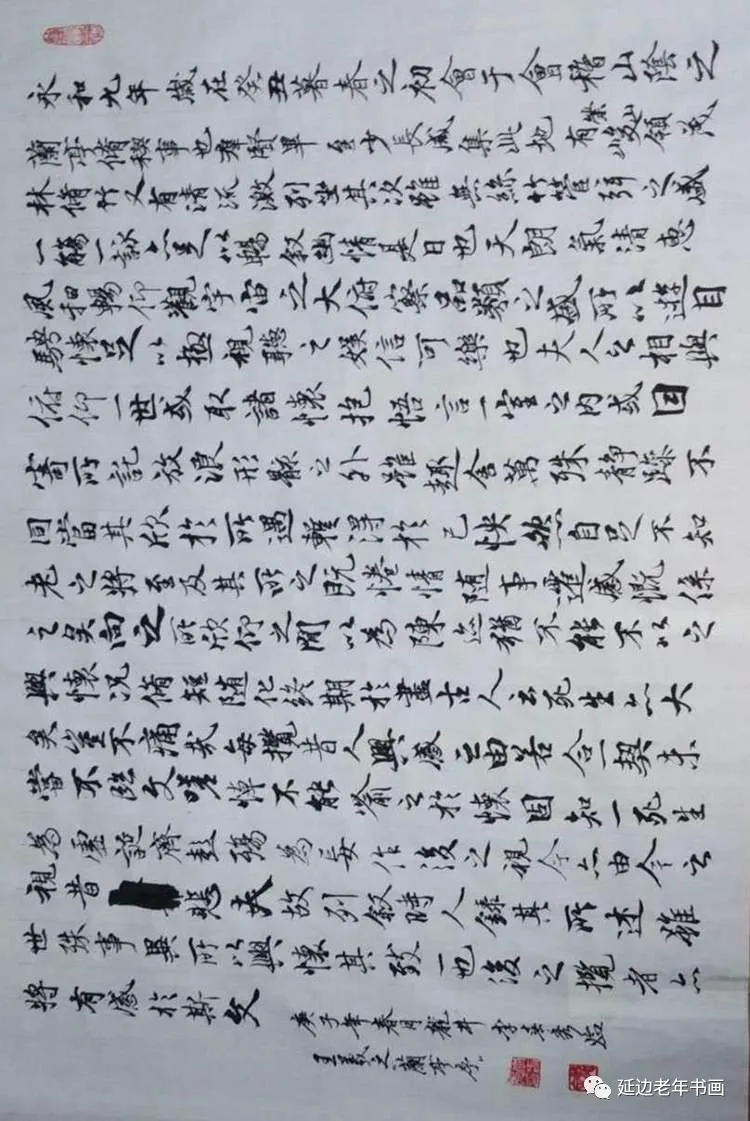 永和九年歲在癸丑暮春之初會于會稽山陰之
蘭亭脩稧事也羣賢畢至少長咸集此地有崇山峻領茂
林脩竹又有清流激列坐其次雖無絲竹管弦之盛
一觴一詠亦足以暢敘幽情是日也天朗氣清惠
風和暢仰觀宇宙之大俯察品類之盛所以遊目
騁懷足以極視聽之娛信可樂也夫人之相與
俯仰一世或取諸懷抱悟言一室之內或因
寄所託放浪形骸之外雖趣舍萬殊靜躁不
同當其欣於所遇輒得於己怏然自足不知
老之將至及其所之既惓情随事遷感慨係
之矣向之所欣仰之閒以為陳迹猶不能不以之
興懷況脩短随化終期於盡古人云死生亦大
矣豈不痛哉每攬昔人興感之由若合一契未
嘗不臨文嗟悼不能喻之於懷固知一死生
為虛誕齊彭殤為妄作後之視今亦由今之
視昔悲夫故列敘時人錄其所述雖
世殊事異所以興懷其致一也後之攬者亦
將有感於斯文
庚子年春月龍井李英秀臨
王羲之蘭亭序
延边老年书画